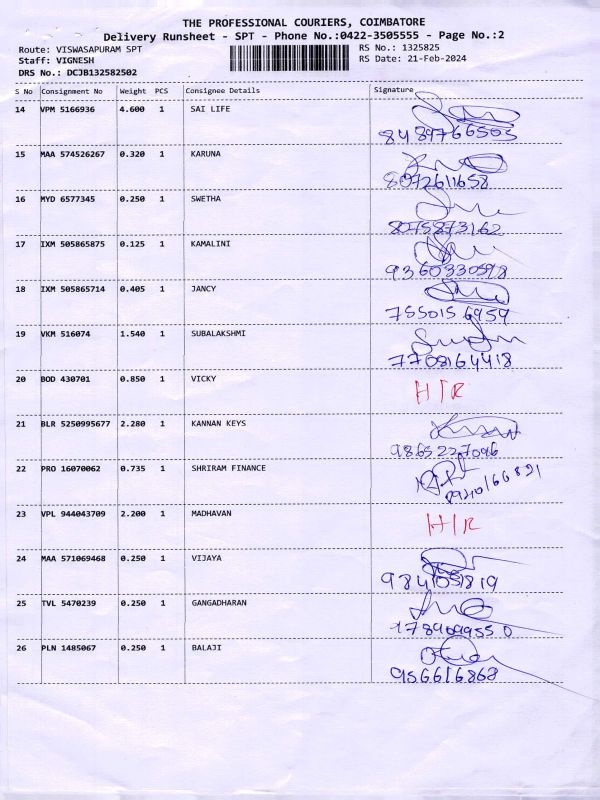 THE PROFESSIONAL COURIERS, COIMBATORE
Delivery Runsheet - SPT - Phone No.:0422-3505555 - Page No.:2
Route: VISWASAPURAM SPT RS No.: 1325825
Staff: VIGNESH RS Date: 21-Feb-2024
DRS No.: DCJB132582502
S No Consignment No Weight PCS Consignee Details Signature
14 VPM 5166936 4.600 1 SAI LIFE
8489766505
15 MAA 574526267 0.320 1 KARUNA
8072611658
16 MYD 6577345 0.250 1 SWETHA
8075873162
17 IXM 505865875 0.125 1 KAMALINI
9360330598
18 IXM 505865714 0.405 1 JANCY
7550156959
19 VKM 516074 1.540 1 SUBALAKSHMI
7708164418
20 BOD 430701 0.850 1 VICKY H/R
21 BLR 5250995677 2.280 1 KANNAN KEYS
9865227096
22 PRO 16070062 0.735 1 SHRIRAM FINANCE
23 VPL 944043709 2.200 1 MADHAVAN H/R
24 MAA 571069468 0.250 1 VIJAYA
25 TVL 5470239 0.250 1 GANGADHARAN
26 PLN 1485067 0.250 1 BALAJI